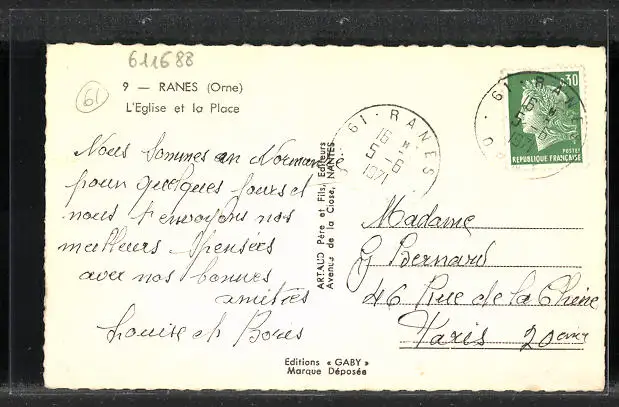 611688
61
9 — RANES (Orne)
L'Eglise et la Place
Nous sommes en Normandie
pour quelques jours et
nous t'envoyons nos
meilleurs pensées
avec nos bonnes
amitiés
Louise et Boris
ARTAUD Père et Fils, Editeurs
Avenue de la Close, NANTES
Editions « GABY »
Marque Déposée
61 - RANES
16 H
5 - 6
1971
61 - RANES
16 H
5 - 6
1971
0,30
POSTES
REPUBLIQUE FRANÇAISE
Madame
G Bernard
46 Rue de la Chine
Paris 20